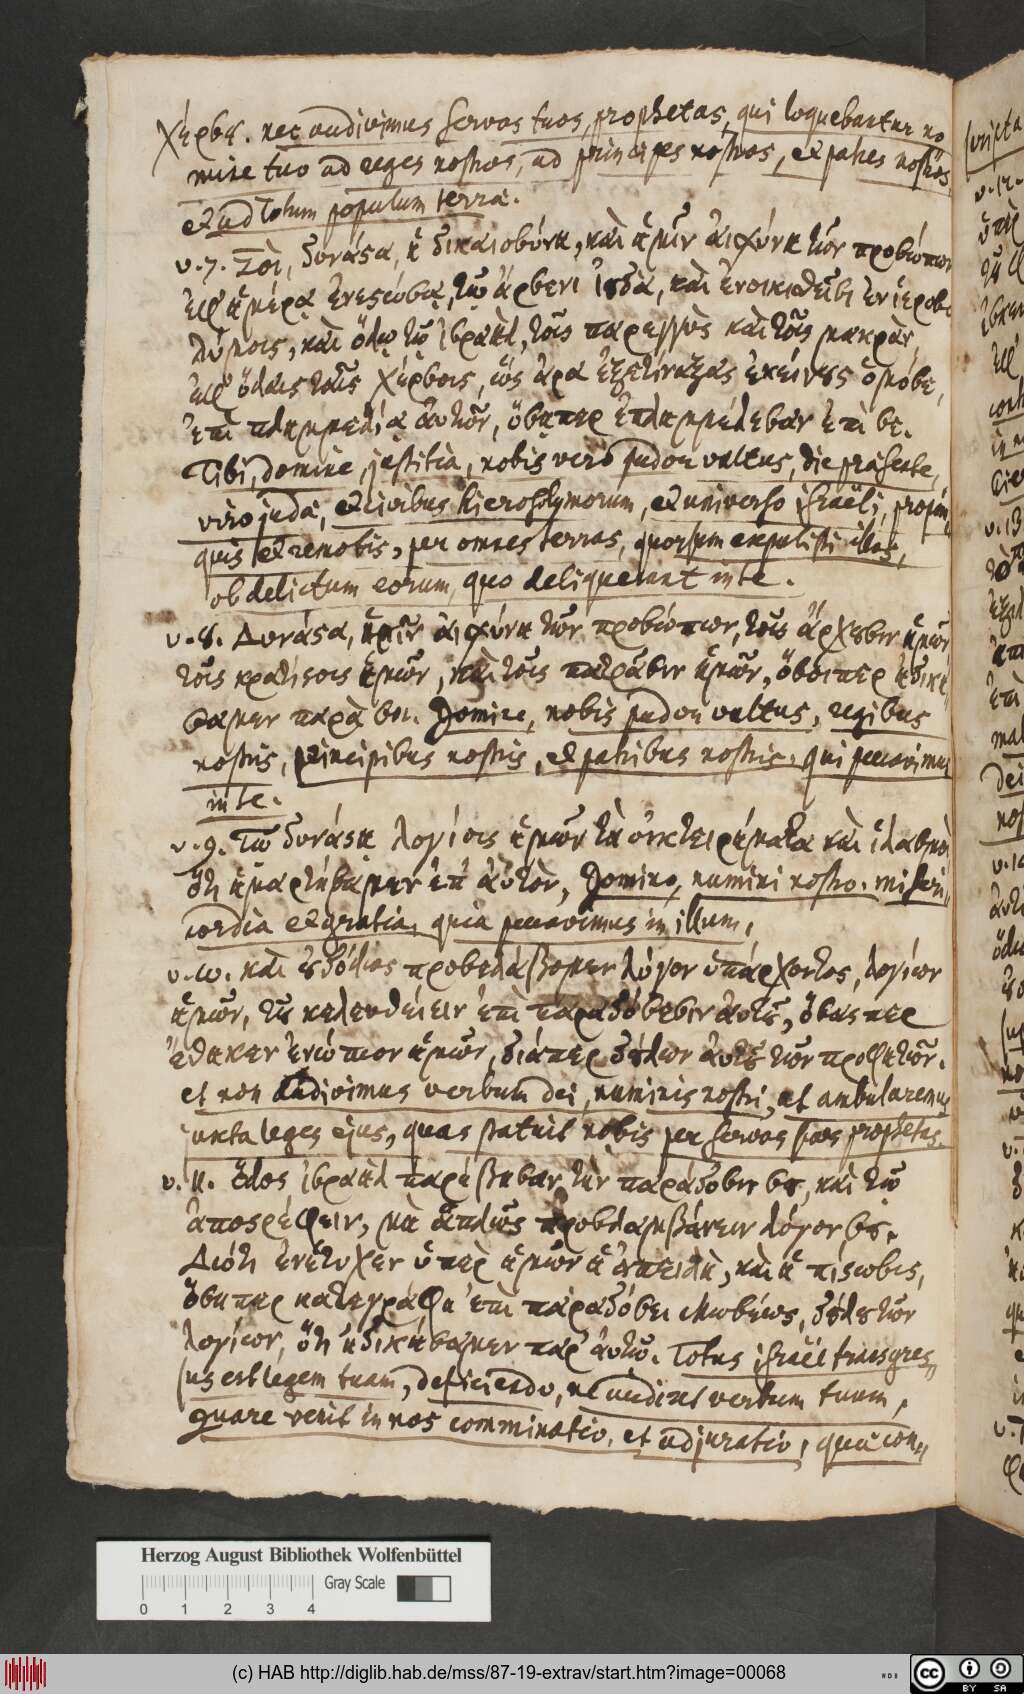 χέρσȣ. nec audivimus servos tuos, prophetas, qui loquebantur no
mine tuo ad reges nostros, ad principes nostros, et patres nostros
et ad totum populum terrae.
v. 7. Σοὶ, δυνάςα, ἡ δικαιοσύνη, καὶ ἡμῖν αἰσχύνη τῶν προσώπων
ἡμέρᾳ ἐνεςώσᾳ, τῷ ἄρσενι ἰȣδὰ, καὶ ἐνοικιςθεῖσι ἐν ἱεροσο
λύμοις, καὶ ὅλῳ τῷ ἰσραὴλ, τοῖς παρεγγὺς καὶ τοῖς μακρὰν,
ὅλαις ταῖς χέρσοις, ὡς ἄρα ἐξετίναξας ἐκείνȣς
ἐπὶ πλημμελίᾳ ἀυτῶν, ὅσηπερ ἐπλημμέλεσαν ἐπὶ σε.
Tibi, domine, justitia, nobis vero pudor vultus, die praesente,
viro juda, et civibus hierosolymorum, et universo israëli, propin„
quis et remotis, per omnes terras, quorsum expulisti illos,
ob delictum eorum, quo deliquerunt in te.
v. 8. Δυνάςα, ἡμῖν αἰσχύνη τῶν προσώπων, τοῖς ἄρχȣσιν ἡμῶν
τοῖς κρατίςοις ἡμῶν, καὶ τοῖς πατράσιν ἡμῶν, ὅσοιπερ ἠδική
σαμεν παρὰ σοι. Domine, nobis pudor vultus, regibus
nostris, principibus nostris, et patribus nostris, qui peccavimus
in te.
v. 9. Τῷ δυνάςῃ λογίοις ἡμῶν τὰ ὀικτειρήματα καὶ ἱλασμοὶ
ὅτι ἡμαρτήσαμεν ἐπ' ἀυτὸν, Domino, numini nostro, miseri„
cordia et gratia, quia peccavimus in illum,
v. 10. καὶ ȣδόλως προσελάβομεν λόγον ὑπάρχοντος, λογίων
ἡμῶν, τȣ κελευθείειν ἐπὶ παραδόσεσιν ἀυτȣ, ὅσας περ
ἔθηκεν ἐνώπιον ἡμῶν, διάπερ δȣλων ἀυτȣ τῶν προφητῶν.
et non audivimus verbum dei, numinis nostri, ut ambularemus
juxta leges ejus, quas statuit nobis per servos suos prophetas.
v. 11. ὅλος ἰσραὴλ παρέβησαν τὴν παράδοσιν σȣ, καὶ τῷ
ἀποςρέφειν, μὴ ἁπλῶς προσλαμβάνειν λόγον σȣ.
Διότι ἐνέτυχεν ὑπὲρ ἡμῶν ἡ ἀπειλὴ, καὶ ἡ πίςωσις,
ὅσηπερ κατεγράφη ἐπὶ παραδόσει μωσέως, δȣλȣ τῶν
λογίων, ὅτι ἠδικήσαμεν παρ' ἀυτῷ. Totus israël transgres„
sus est legem tuam, deficiendo, ne audiret verbum tuum,
quare venit in nos comminatio, et adjuratio, quae con„
Herzog August Bibliothek Wolfenbüttel
Gray Scale
0 1 2 3 4
(c) HAB http://diglib.hab.de/mss/87-19-extrav/start.htm?image=00068
cc BY SA